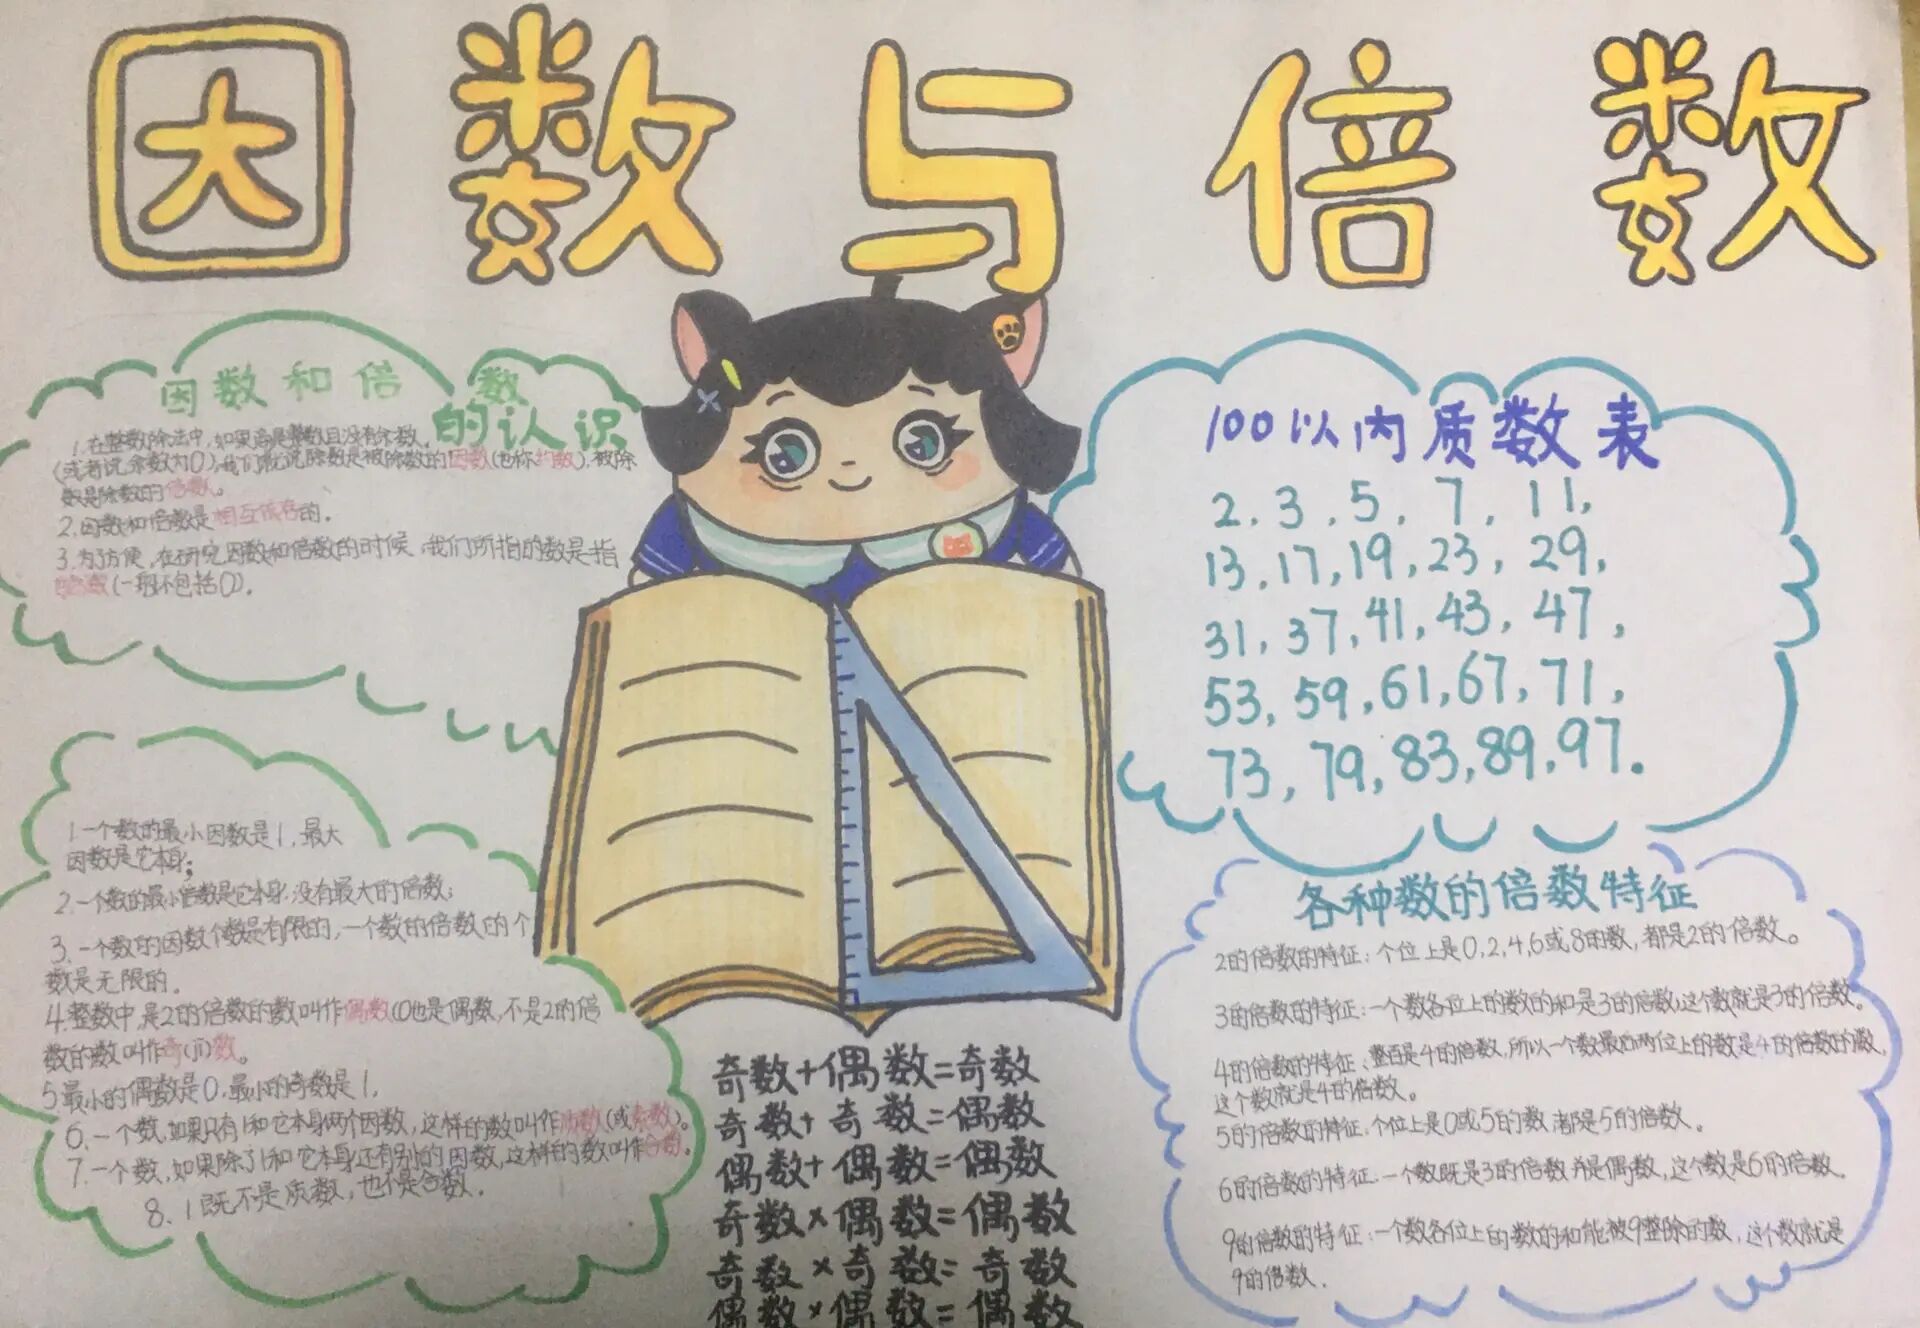 因数与倍数
因数和倍数
的认识
1.在整数除法中,如果商是整数且没有余数,
(或者说余数为0),我们就说除数是被除数的因数(也称约数),被除
数是除数的倍数。
2.因数和倍数是相互依存的.
3.为了方便,在研究因数和倍数的时候,我们所指的数是指
自然数(一般不包括0).
1.一个数的最小因数是1,最大
因数是它本身;
2.一个数的最小倍数是它本身,没有最大的倍数;
3.一个数的因数个数是有限的,一个数的倍数的个
数是无限的.
4.整数中,是2的倍数的数叫作偶数(0也是偶数,不是2的倍
数的数叫作奇(jī)数。
5.最小的偶数是0,最小的奇数是1,
6.一个数,如果只有1和它本身两个因数,这样的数叫作质数(或素数)。
7.一个数,如果除了1和它本身还有别的因数,这样的数叫作合数。
8.1既不是质数,也不是合数.
奇数+偶数=奇数
奇数+奇数=偶数
偶数+偶数=偶数
奇数×偶数=偶数
奇数×奇数=奇数
偶数×偶数=偶数
100以内质数表
2,3,5,7,11,
13,17,19,23,29,
31,37,41,43,47,
53,59,61,67,71,
73,79,83,89,97.
各种数的倍数特征
2的倍数的特征:个位上是0,2,4,6或8的数,都是2的倍数。
3的倍数的特征:一个数各位上的数的和是3的倍数,这个数就是3的倍数。
4的倍数的特征:整百是4的倍数,所以一个数最后两位上的数是4的倍数的数,
这个数就是4的倍数。
5的倍数的特征:个位上是0或5的数,都是5的倍数.
6的倍数的特征:一个数既是3的倍数并是偶数,这个数是6的倍数.
9的倍数的特征:一个数各位上的数的和能被9整除的数,这个数就是
9的倍数.